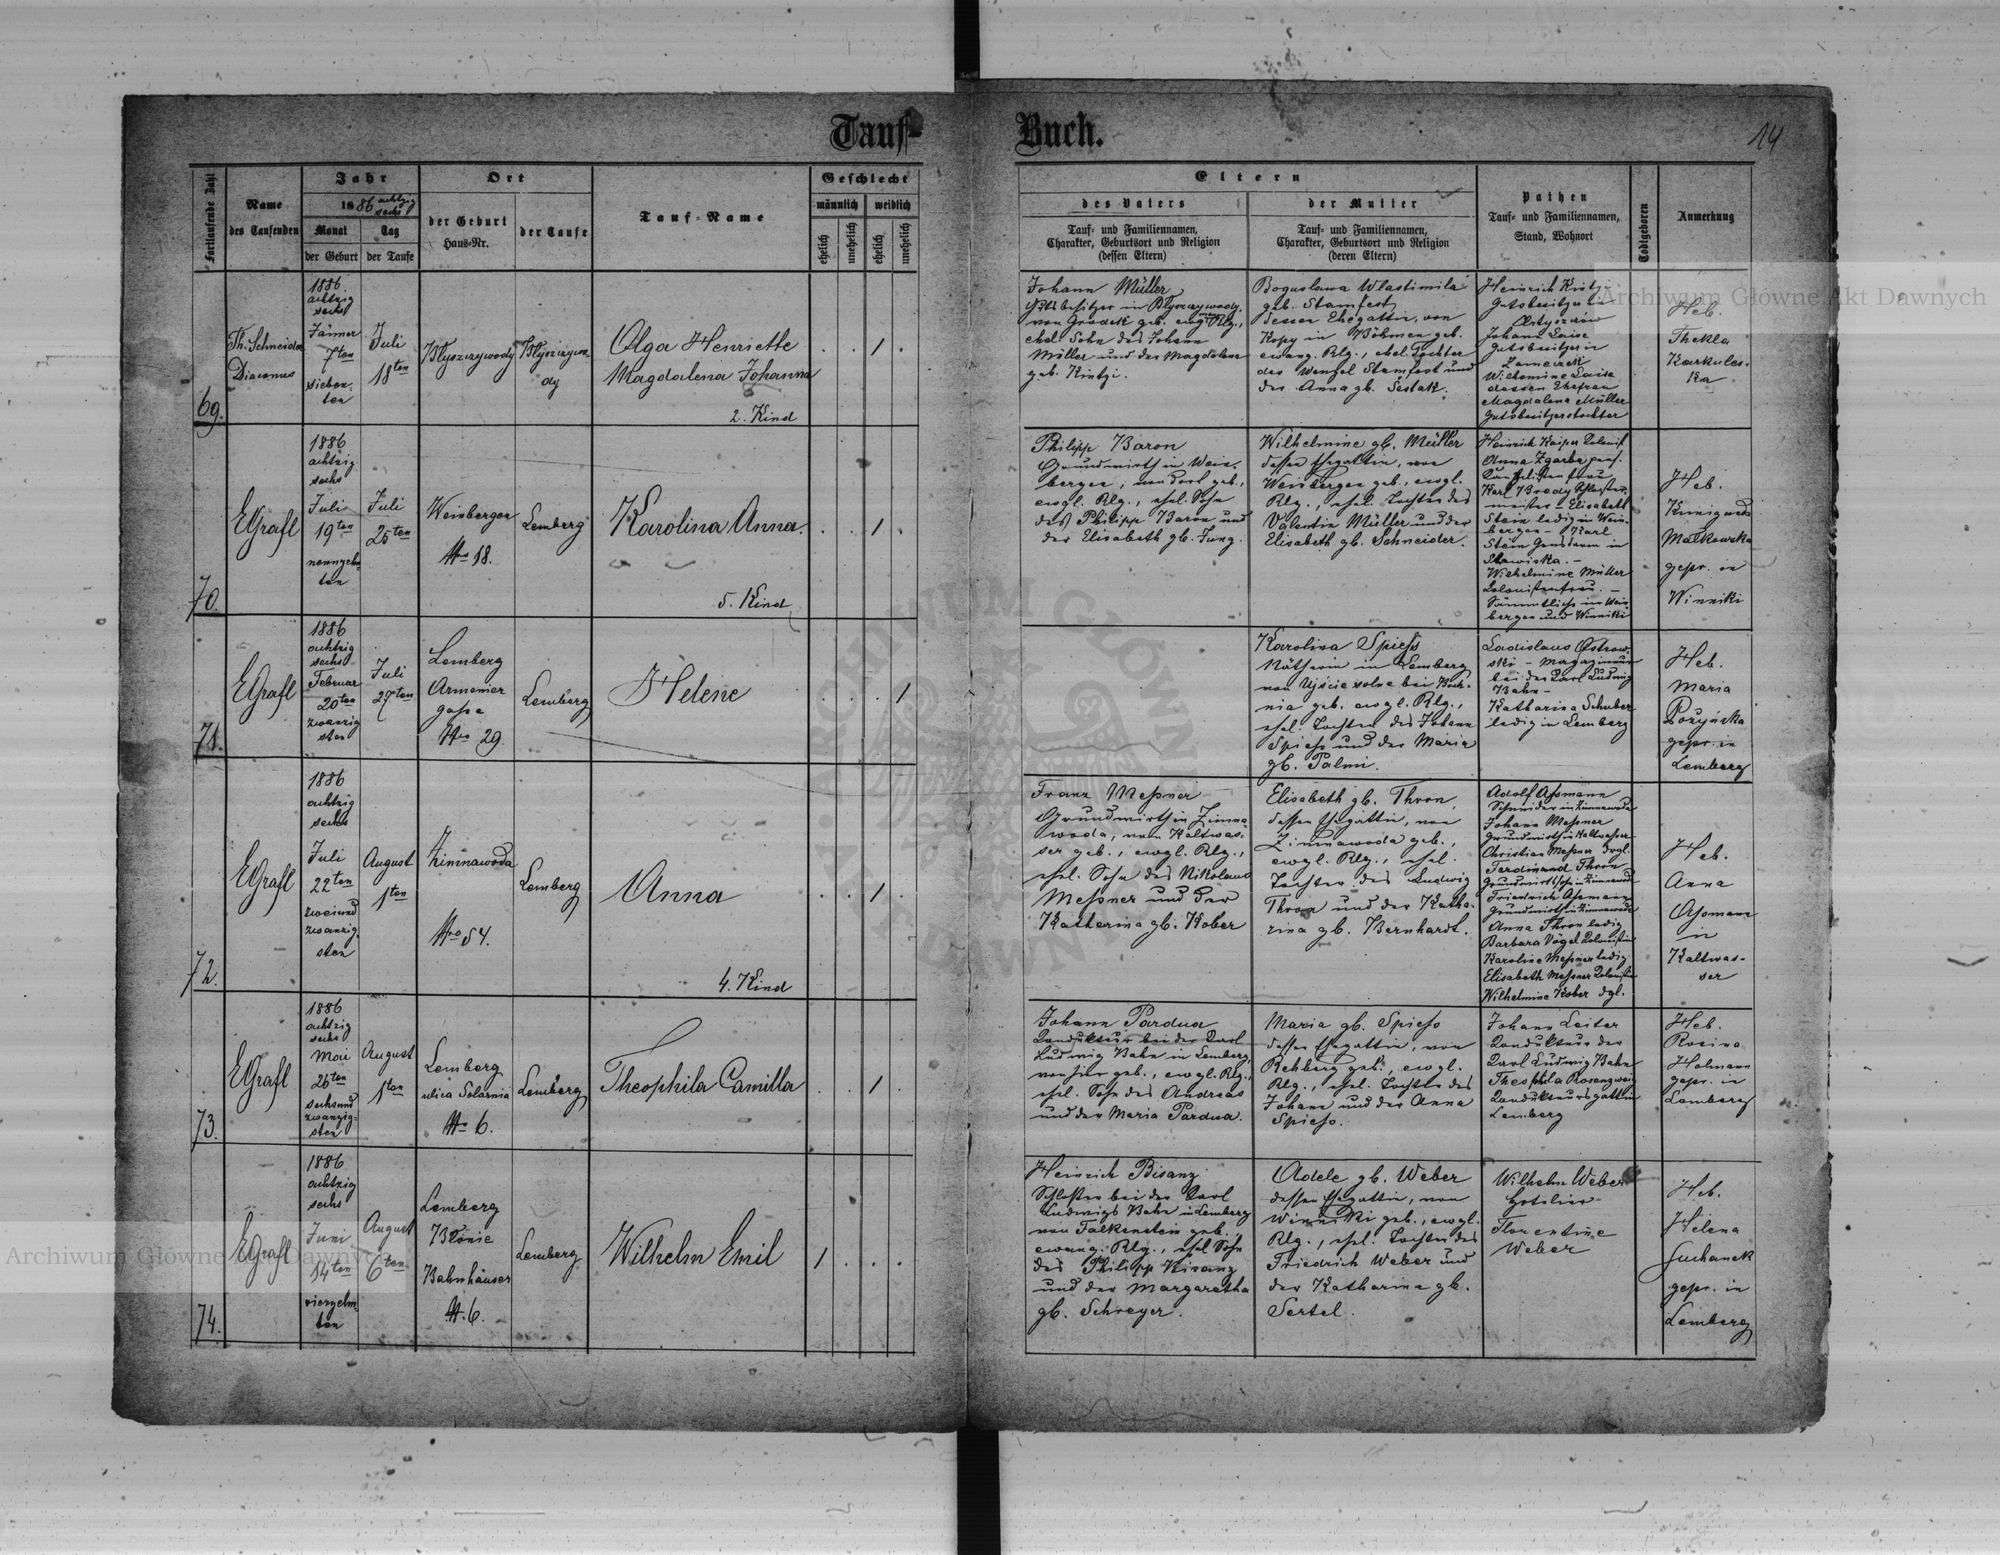 Tauf-
Buch.
14
Fortlaufende Zahl
Name
des Taufenden
Jahr
1886 achtzig
sechs
Monat
der Geburt
Tag
der Taufe
Ort
der Geburt
Haus-Nr.
der Taufe
Tauf-Name
Geschlecht
männlich
weiblich
ehelich
unehelich
ehelich
unehelich
Eltern
des Vaters
Tauf- und Familiennamen,
Charakter, Geburtsort und Religion
(dessen Eltern)
der Mutter
Tauf- und Familiennamen,
Charakter, Geburtsort und Religion
(deren Eltern)
Pathen
Tauf- und Familiennamen,
Stand, Wohnort
Todtgeboren
Anmerkung
69.
Th. Schneider
Diaconus
1886.
achtzig
sechs
Jänner
7ten
sieben-
ten
Juli
18ten
Olga Henriette
Magdalena Johanna
2. Kind
1
Johann Müller
Gutsbesitzer in
ehel. Sohn des Johann
Müller und der Magdalena
geb. Kintzi.
Boguslawa Wlastimila
geb. Stamfest
dessen Ehegattin, von
Kopy in Böhmen geb.
evang. Rlg., ehel. Tochter
des Wenzel Stamfest und
der Anna gb. Sestak.
Heinrich Kintzi
Gutsbesitzer in
Johann
Gutsbesitzer in
Wilhelmine
dessen Ehefrau
Magdalena Müller
Gutsbesitzerstochter
Heb.
Thekla
Karkules-
ka
70.
EGrafl
1886
achtzig
sechs
Juli
19ten
neunzehn-
ten
Juli
25ten
Weinbergen
Nro 18.
Lemberg
Karolina Anna.
5. Kind
1
Philipp Baron
Grundwirth in Wein-
bergen, von dort geb.,
evgl. Rlg., ehel. Sohn
des Philipp Baron und
der Elisabeth gb. Jung.
Wilhelmine gb. Müller
dessen Ehegattin, von
Weinbergen geb., evgl.
Rlg., ehel. Tochter des
Valentin Müller und der
Elisabeth gb. Schneider.
Karl
Elisabeth
Stein ledig in Wein-
bergen - Karl
Stein Gensdarm in
Wilhelmine Müller
Colonistenfrau. -
Sämmtlich in Wein-
bergen und Winniki
Heb.
Kunigunda
Małkowska
gepr. in
Winniki
71.
EGrafl
1886
achtzig
sechs
Februar
20ten
zwanzig
sten
Juli
27ten
Lemberg
Armenier
gasse
Nro 29
Lemberg
Helene
1
Karolina Spiess
Nätherin in Lemberg
von Ujście solne bei Boch-
nia geb. evgl. Rlg.,
ehel. Tochter des Johann
Spiess und der Maria
gb. Palmi.
Ladislaus Ostrow-
ski - Magazineur
bei der Carl Ludwig
Bahn -
Katharina Schuber
ledig in Lemberg
Heb.
Maria
Rożyńska
gepr. in
Lemberg
72.
EGrafl
1886
achtzig
sechs
Juli
22ten
zweiund
zwanzig-
sten
August
1ten
Zimnawoda
Nro 54.
Lemberg
Anna
4. Kind
1
Franz Messner
Grundwirth in Zimna
woda, von Kaltwas-
ser geb., evgl. Rlg.,
ehel. Sohn des Nikolaus
Messner und der
Katherina gb. Kober
Elisabeth gb. Thron,
dessen Ehegattin, von
Zimnawoda geb.,
evgl. Rlg., ehel.
Tochter des Ludwig
Thron und der Katha-
rina gb. Bernhardt.
Adolf Assmann
Schneider in Zimnawoda
Johann Messner
Grundwirth in Kaltwasser
Christian Messner dgl.
Ferdinand Thron
Friedrich Assmann
Grundwirth in Zimnawoda
Anna Thron ledig
Barbara Vogel Colonistin
Karoline Messner ledig
Elisabeth Messner Colonistin
Wilhelmine Kober dgl.
Heb.
Anna
Assmann
in
Kaltwas-
ser
73.
EGrafl
1886
achtzig
sechs
Mai
26ten
sechsund
zwanzig-
sten
August
1ten
Lemberg
ulica Solarnia
No 6.
Lemberg
Theophila Camilla
1
Johann Pardua
Condukteur bei der Carl
Ludwig Bahn in Lemberg,
von hier geb., evgl. Rlg.,
ehel. Sohn des Andreas
und der Maria Pardua.
Maria gb. Spiess
dessen Ehegattin, von
Rehberg geb., evgl.
Rlg., ehel. Tochter des
Johann und der Anna
Spiess.
Johann Leiter
Condukteur der
Carl Ludwig Bahn
Theophila Rosenzweig
Condukteursgattin
Lemberg
Heb.
Rosina
Hofmann
gepr. in
Lemberg
74.
EGrafl
1886
achtzig
sechs
Juni
14ten
vierzehn
ten
August
6ten
Lemberg
Błonie
Bahnhäuser
N. 6.
Lemberg
Wilhelm Emil
1
Heinrich Bisanz
Schlosser bei der Carl
Ludwigs Bahn in Lemberg
von Falkenstein geb.,
evang. Rlg., ehel Sohn
des Philipp Bisanz
und der Margaretha
gb. Schreyer.
Adele gb. Weber
dessen Ehegattin, von
Winniki geb., evgl.
Rlg., ehel. Tochter des
Friedrich Weber und
der Katharina gb.
Sertel.
Wilhelm Weber
Hotelier
Florentine
Weber
Heb.
Helena
Suchanek
gepr. in
Lemberg
Archiwum Główne Akt Dawnych
Archiwum Główne Akt Dawnych
ARCHIWUM GŁÓWNE AKT DAWNYCH